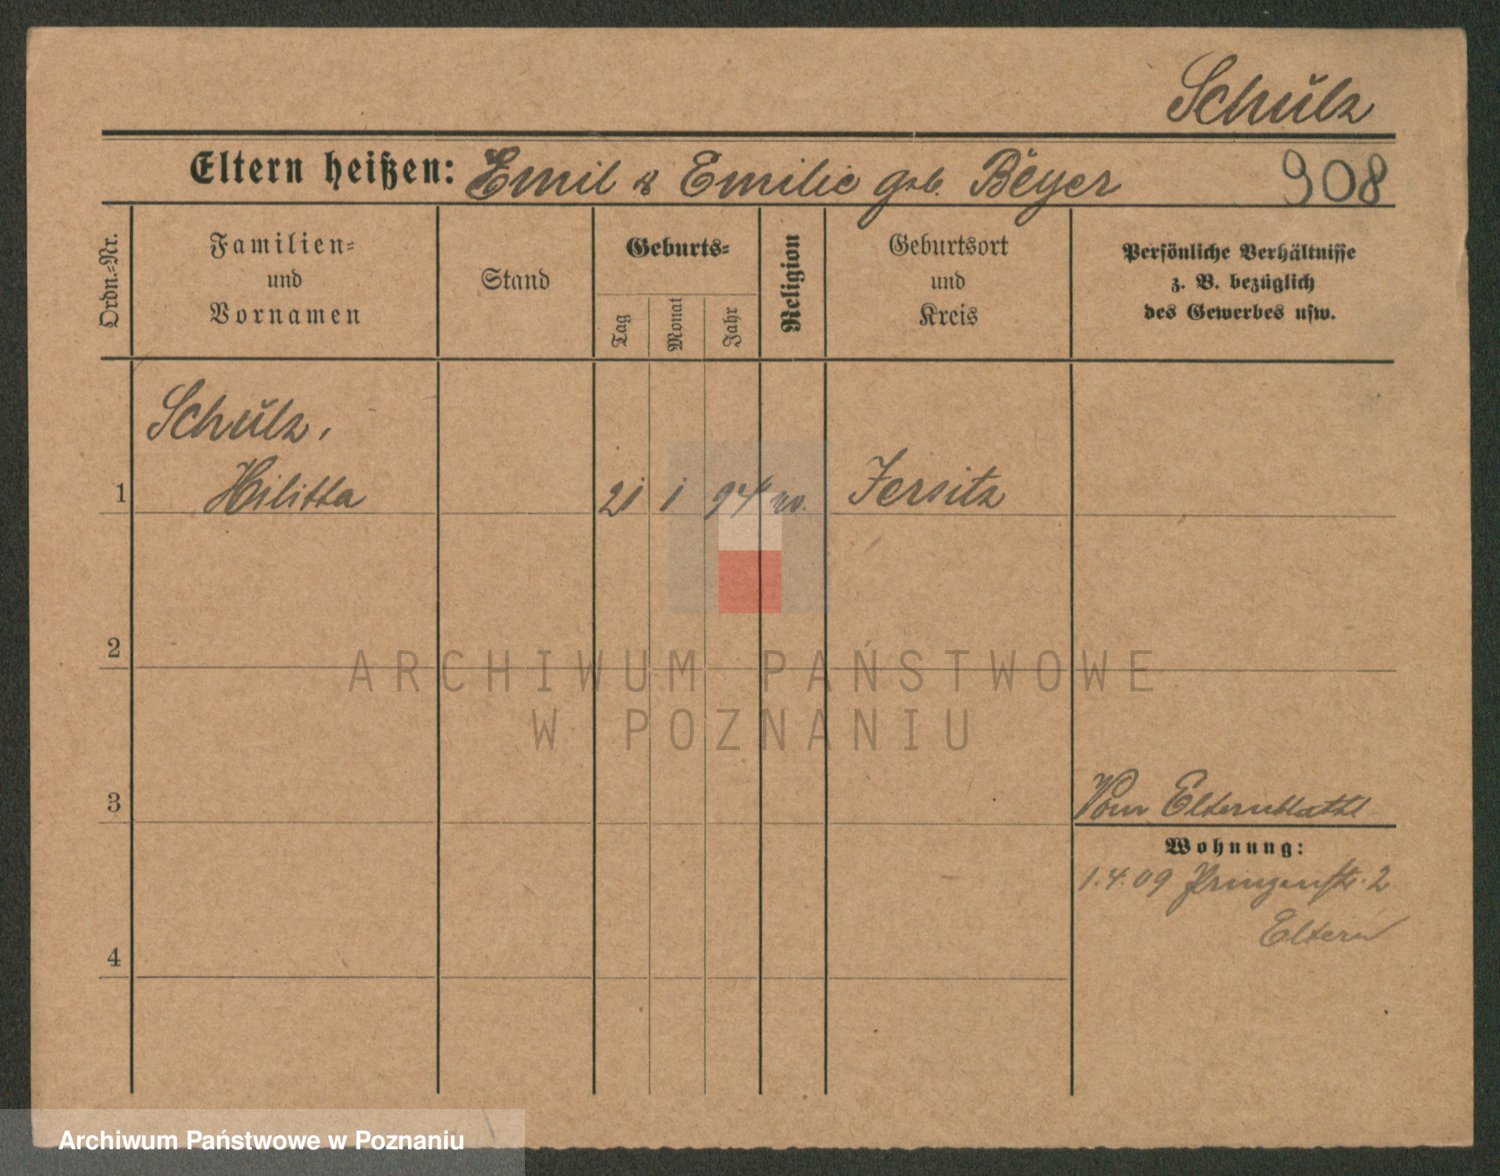 Schulz
Eltern heißen: Emil & Emilie geb. Beyer 908
Ordn.-Nr.
Familien-
und
Vornamen
Stand
Geburts-
Tag
Monat
Jahr
Religion
Geburtsort
und
Kreis
Persönliche Verhältnisse
z. B. bezüglich
des Gewerbes usw.
Schulz,
1 Hilitta 21 1 94 ev. Jersitz
2
ARCHIWUM PAŃSTWOWE
W POZNANIU
3 Vom Elternblatt
Wohnung:
1.4.09 Prinzenstr. 2
Eltern
4
Archiwum Państwowe w Poznaniu